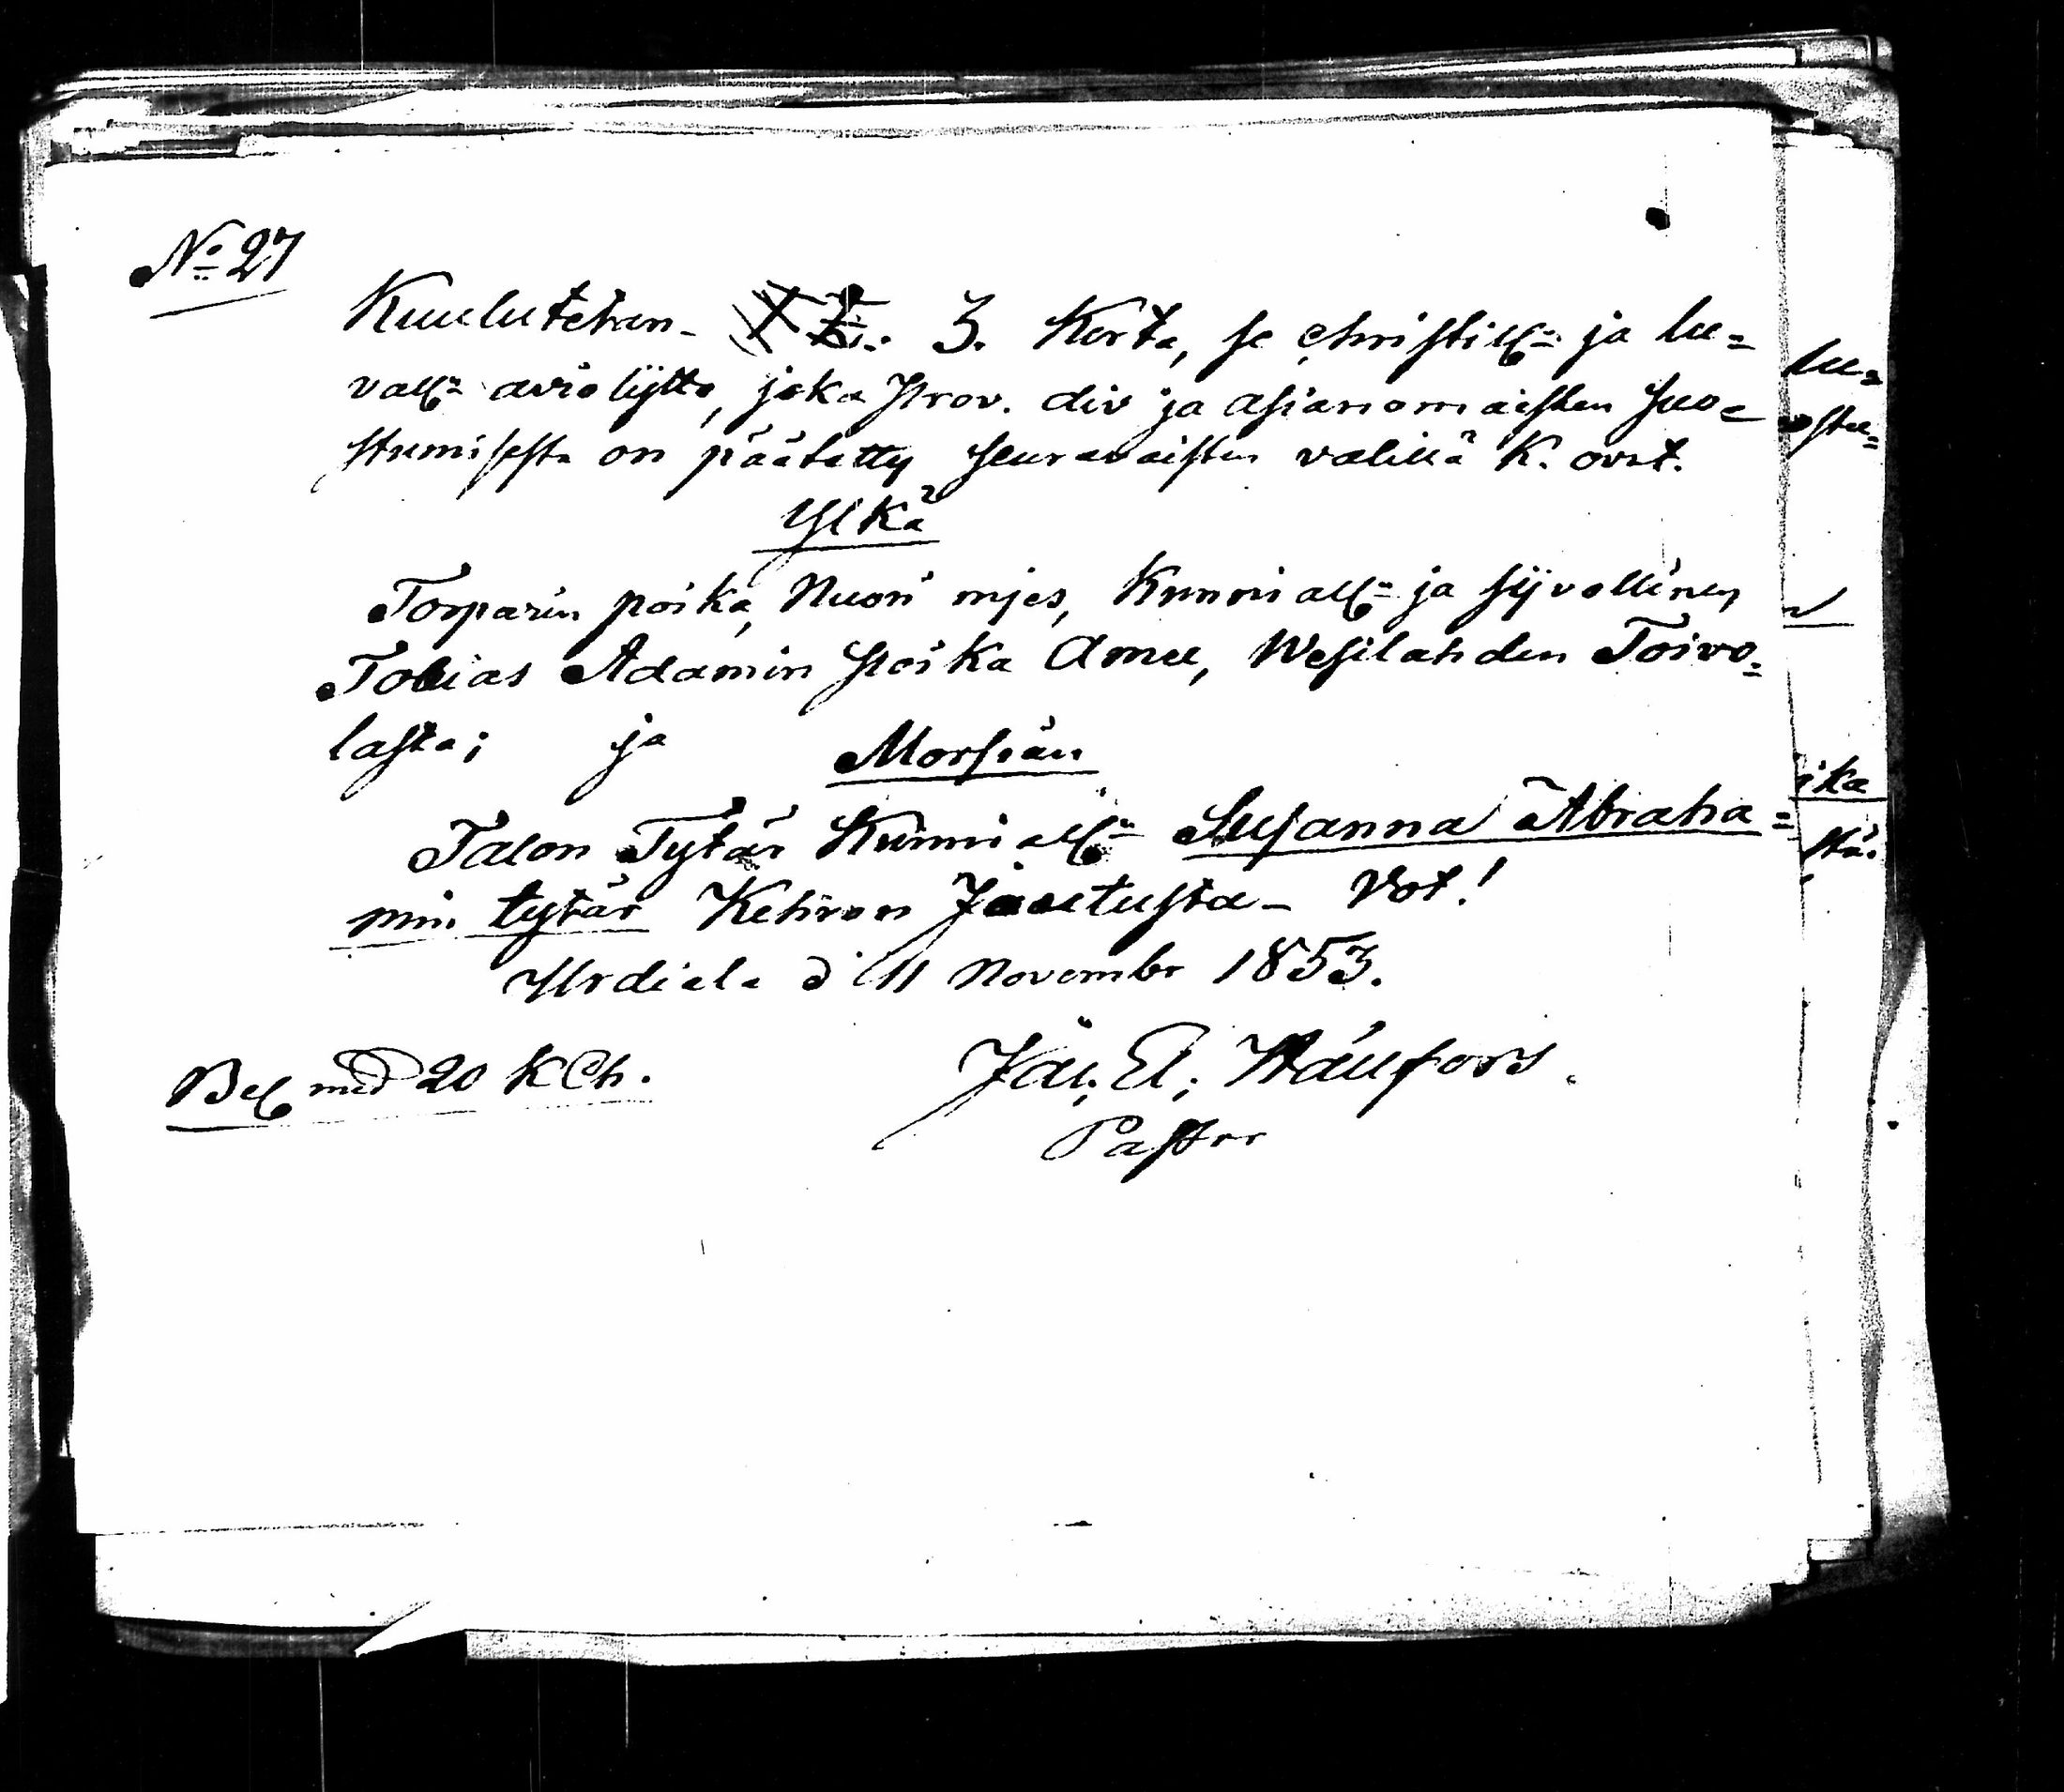 No 27
Kuulutetan 3. Kerta, se christill: ja lu=
vall: avioliјtto, joka Prov. div ja asianomaisten suo=
stumisesta on päätetty seuravaisten välillä K. ovst.
Ylkä
Torparin poika, Nuori mjes, Kunniall: ja sijvollinen
Tobias Adamin poika Amee, Wesilahden Toivo=
lasta; ja Morsian
Talon Tytär Kunniall: Susanna Abraha=
min tytär Kehron Jautusta - Vot!
Urdiala d 11 Novembr 1853.
Bel med 20 K Ch.
Pastor
lu=
ostu=
ika